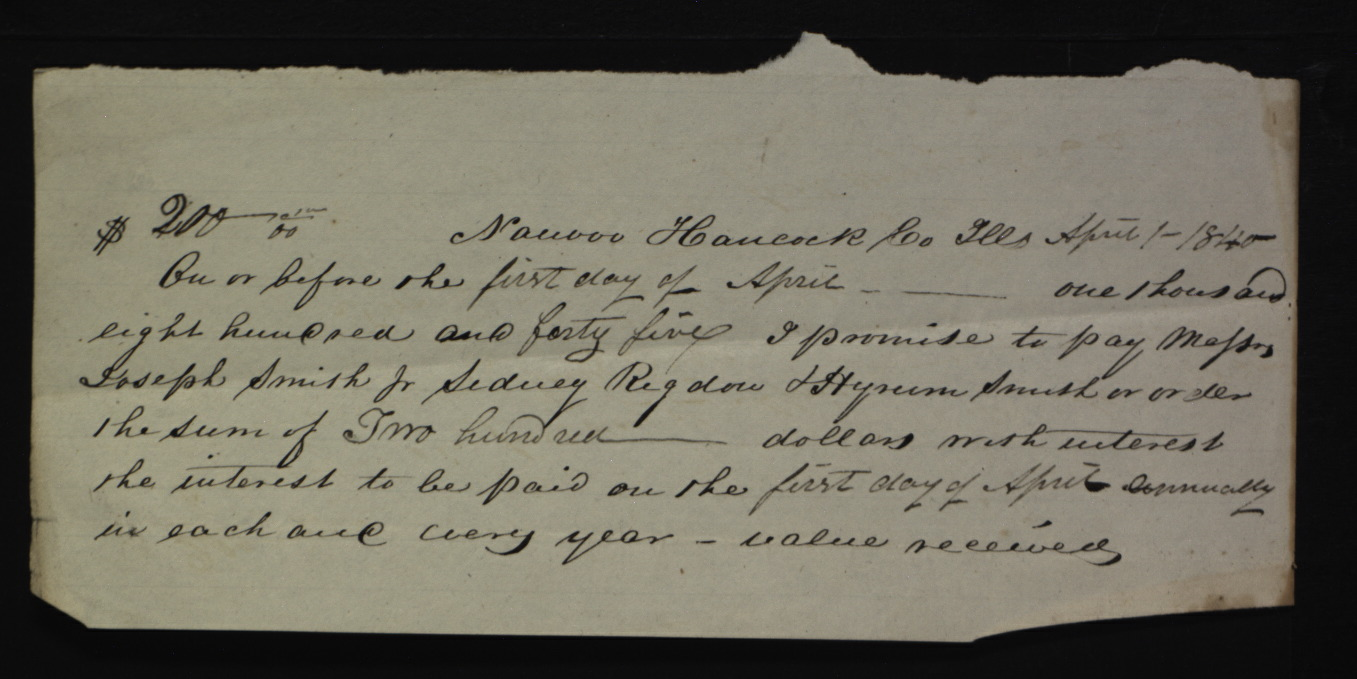 $ 200 00 Nauvoo Hancock Co Ills April 1- 1840
On or before the first day of April - —— one thousand
eight hundred and forty five I promise to pay Messrs
Joseph Smith Jr Sidney Rigdon & Hyrum Smith or order
the sum of Two hundred —— dollars with interest
the interest to be paid on the first day of April annually
in each and every year - value received